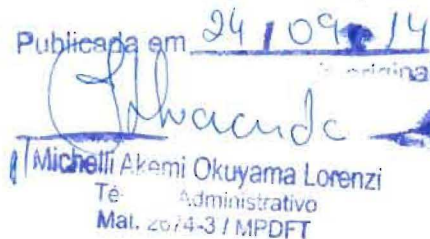 Publicada em 24 / 09 / 14
Michelli Akemi Okuyama Lorenzi
Té Administrativo
Mat. 2674-3 / MPDFT